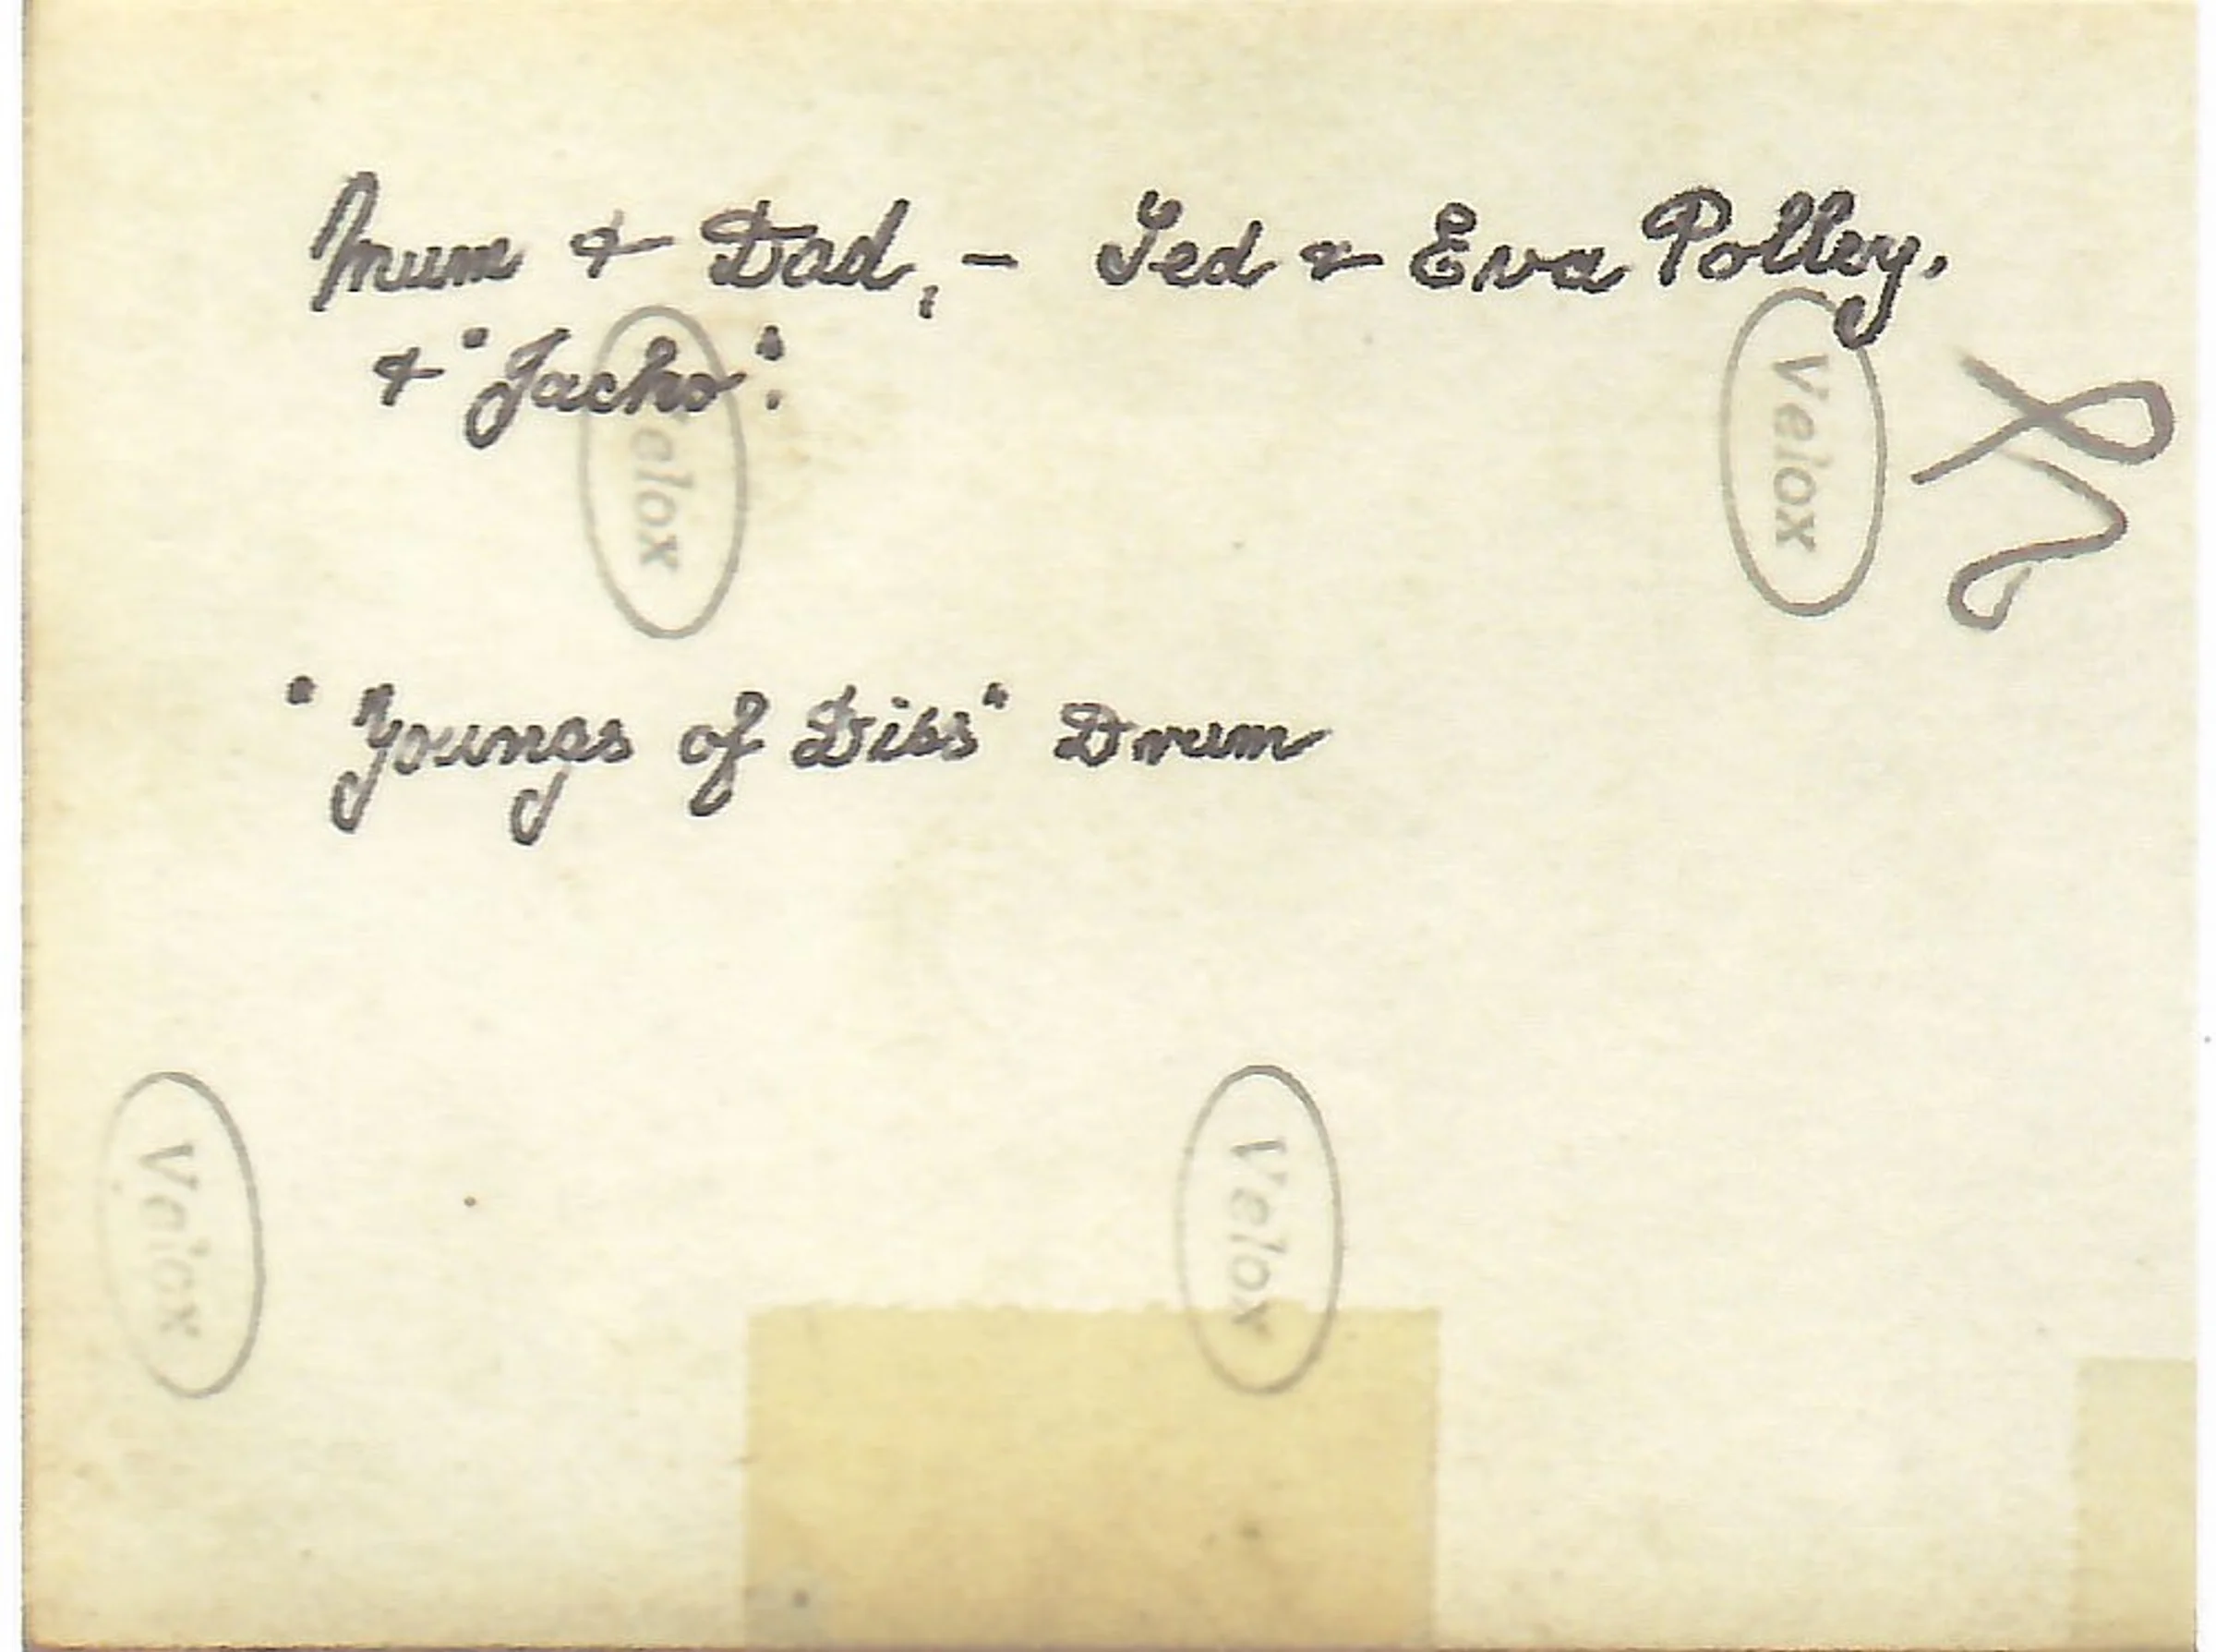 Mum & Dad, - Ted & Eva Polley.
& "Jacko".
Velox
Velox
"Youngs of Diss" Drum
Velox
Velox